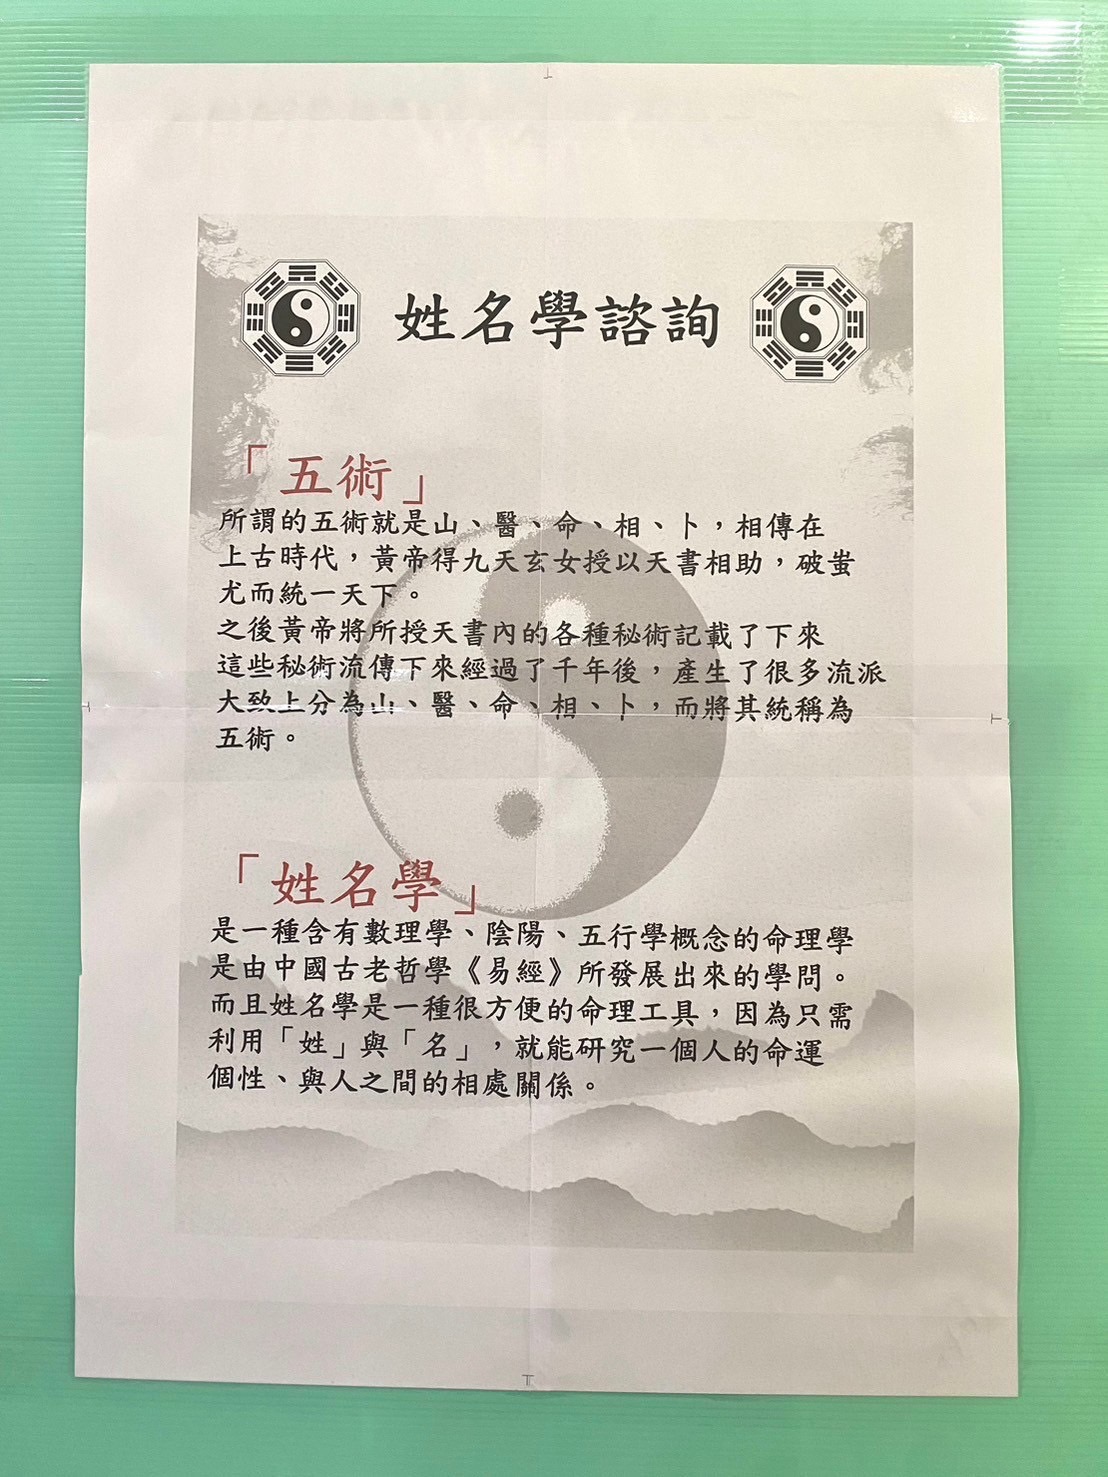 姓名學諮詢
「五術」
所謂的五術就是山、醫、命、相、卜，相傳在
上古時代，黃帝得九天玄女授以天書相助，破蚩
尤而統一天下。
之後黃帝將所授天書內的各種秘術記載了下來
這些秘術流傳下來經過了千年後，產生了很多流派
大致上分為山、醫、命、相、卜，而將其統稱為
五術。
「姓名學」
是一種含有數理學、陰陽、五行學概念的命理學
是由中國古老哲學《易經》所發展出來的學問。
而且姓名學是一種很方便的命理工具，因為只需
利用「姓」與「名」，就能研究一個人的命運
個性、與人之間的相處關係。